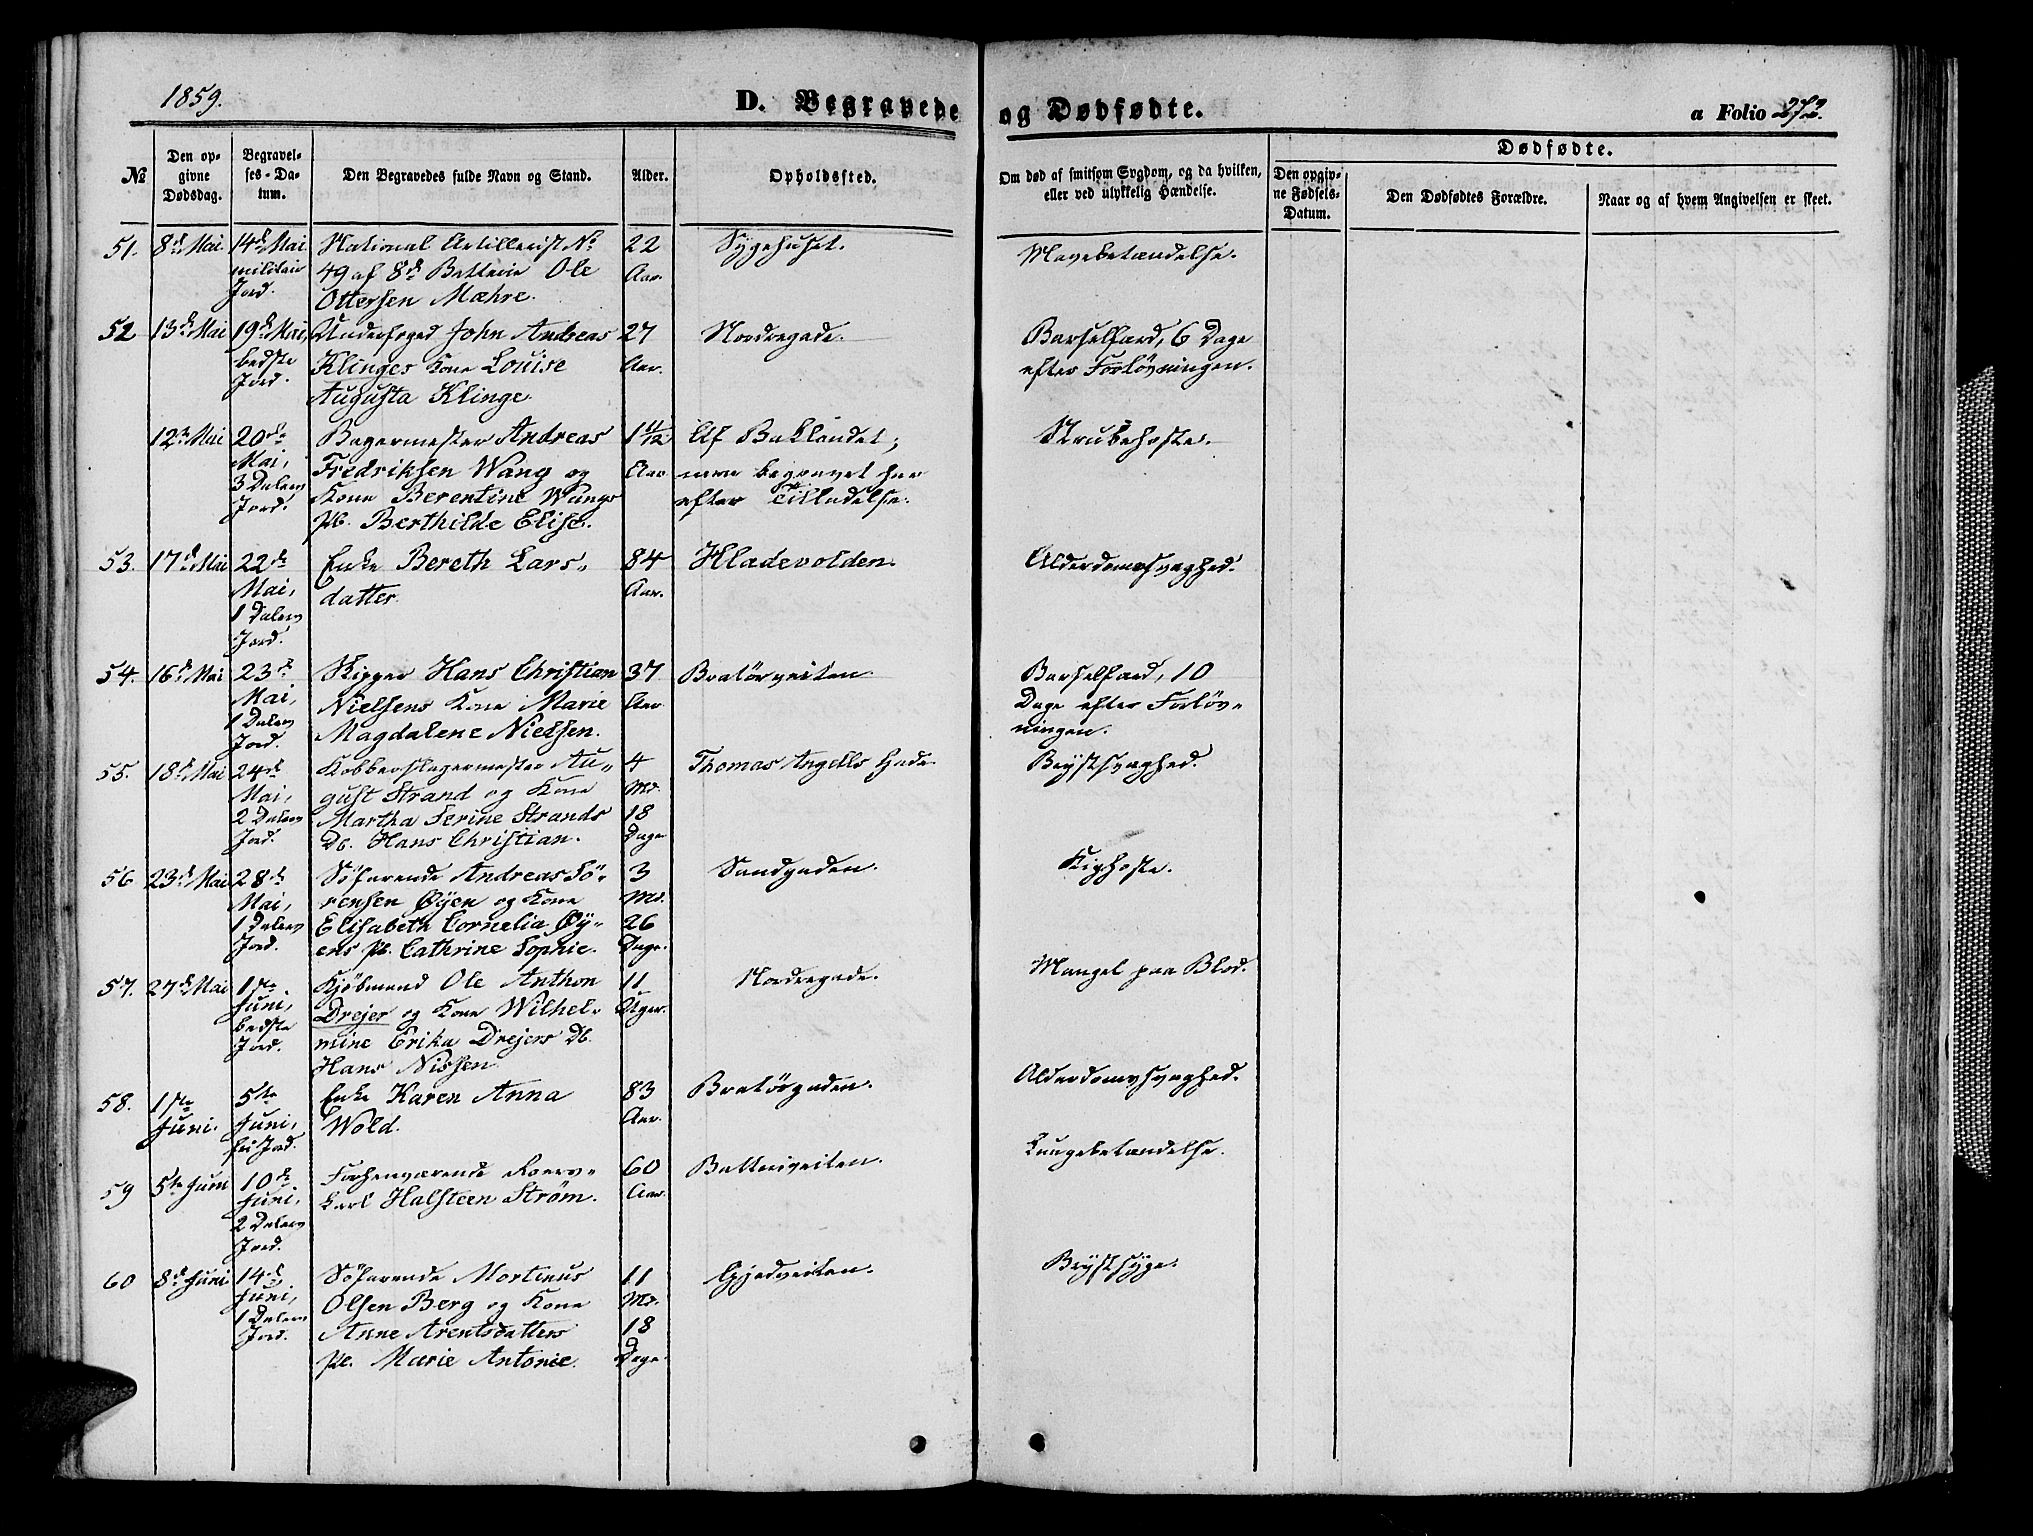 1859.
D. Begravede og Dødfødte.
a Folio 272.
№
Den opgivne Dødsdag.
Begravelses-Datum.
Den Begravedes fulde Navn og Stand.
Alder.
Opholdssted.
Om død af smitsom Sygdom, og da hvilken, eller ved ulykkelig Hændelse.
Dødfødte.
Den opgivne Fødsels-Datum.
Den Dødfødtes Forældre.
Naar og af hvem Angivelsen er skeet.
51. 8de Mai 14de Mai National Artillerist No 22 Sygehuset. Mavebetændelse.
militair 49 af 8de Batterie Ole Aar.
Jord. Ottersen Mæhre.
52 13de Mai 19de Mai, Underfoged John Andreas 27 Nordregade. Barselfærd, 6 Dage
bedste Klinges Kone Louise Aar. efter Forløsningen.
Jord. Augusta Klinge.
12te Mai 20de Bagermester Andreas 1 1/2 Af Baklandet; Strubehoste.
Mai, Fredriksen Wang og Aar men begravet her
3 Dalers Kone Berentine Wangs efter Tilladelse.
Jord. Pb. Berthilde Elise.
53. 17de Mai 22de Enke Bereth Lars- 84 Hladevolden. Alderdomssvaghed.
Mai, datter. Aar.
1 Dalers
Jord.
54. 16de Mai 23de Skipper Hans Christian 37 Bratörveiten. Barselfærd, 10
Mai, Nielsens Kone Marie Aar Dage efter Forløs-
1 Dalers Magdalene Nielsen. ningen.
Jord.
55. 18de Mai 24de Kobberslagermester Au- 4 Thomas Angells Gade. Brystsvaghed.
Mai, gust Strand og Kone Md.
2 Dalers Martha Serine Strands 18
Jord. Db. Hans Christian. Dage
56 23de Mai 28de Söfarende Andreas Sö- 3 Sandgaden. Kighoste.
Mai, rensen Øyen og Kone Md.
1 Dalers Elisabeth Cornelia Øy- 26
Jord. ens Pb. Cathrine Sophie. Dage.
57. 27de Mai 1ste Kjöbmand Ole Anthon 11 Nordregade. Mangel paa Blod.
Juni, Drejer og Kone Wilhel- Uger.
bedste mine Erika Drejers Db.
Jord. Hans Nissen
58. 1ste 5te Enke Karen Anna 83 Bratörgaden. Alderdomssvaghed.
Juni. Juni, Wold. Aar.
fri Jord.
59 5te Juni 10de Forhenværende 60 Batteriveiten. Lungebetændelse.
Juni, Karl Halsteen Strøm. Aar.
2 Dalers
Jord.
60 8de Juni 14de Söfarende Mortinus 11 Gjedveiten. Brystsyge.
Juni, Olsen Berg og Kone Md.
1 Dalers Anne Arentsdatters 18
Jord. Pb. Marie Antonie. Dage